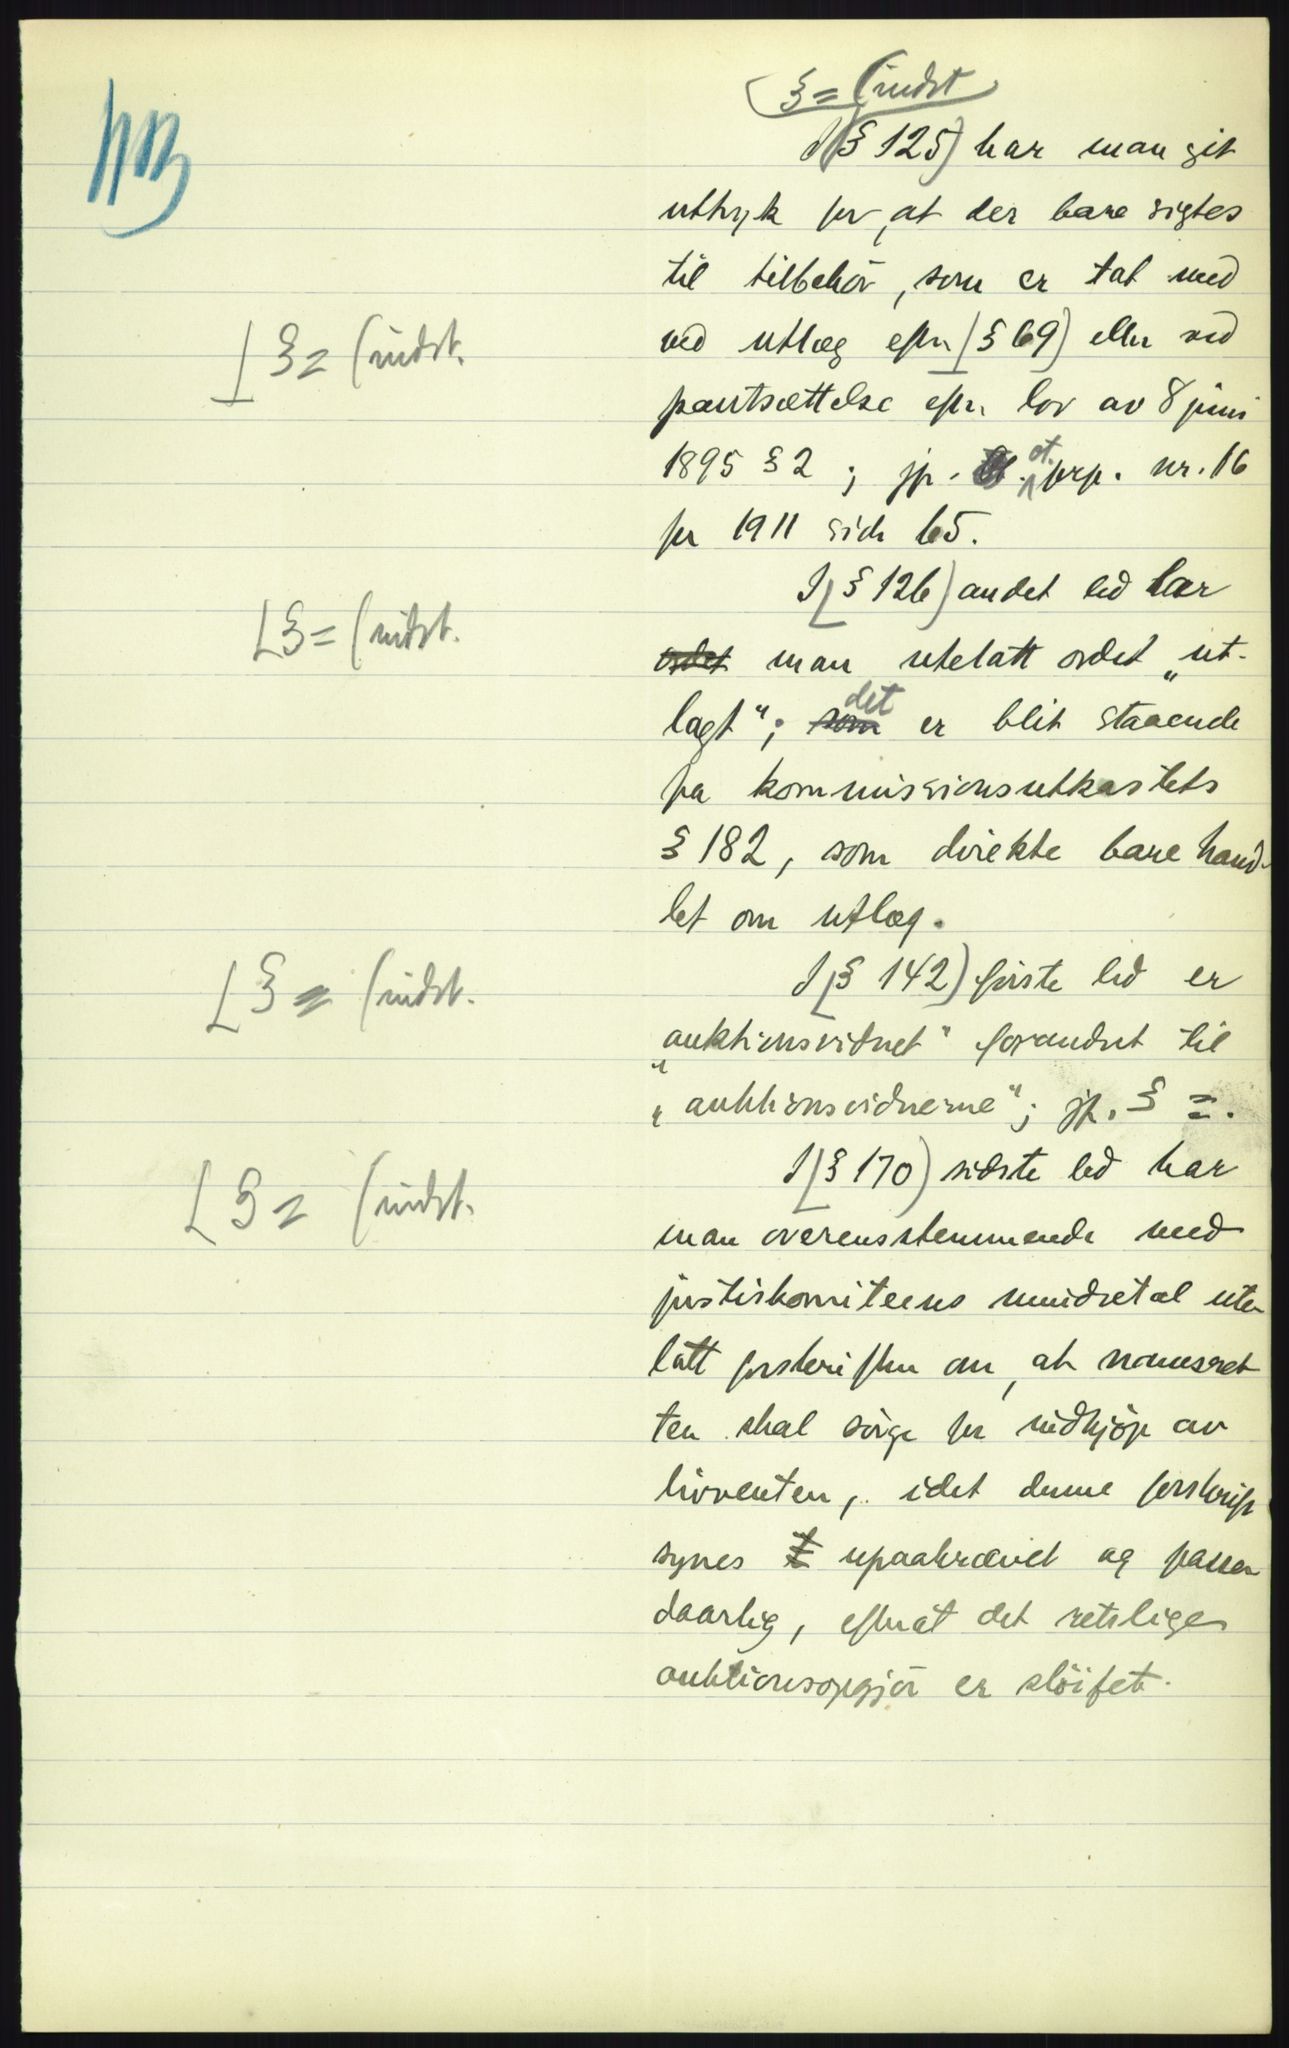 § = (indst
NB
I (§ 125) har man git
uttryk for, at der bare sigtes
til tilbehör, som er tat med
⊥ § = (indst.
ved utlæg efter (§ 69) eller ved
pantsættelse efter lov av 8 juni
1895 § 2 ; jfr. ot. prp. nr. 16
for 1911 side 65.
I (§ 126) andet led har
L § = (indst.
ordet man utelatt ordet „ut-
lagt“; som det er blit staaende
fra kommissionsutkastets
§ 182, som direkte bare hand-
let om utlæg.
I (§ 142) første led er
L § = (indst.
„auktionsvidnet“ forandret til
„auktionsvidnerne“; jfr. § =.
I (§ 170) sidste led har
L § = (indst.
man overensstemmende med
justiskomiteens mindretal ute-
latt forskriften om, at namsret-
ten skal sörge for indkjöp av
livrenten, idet denne forskrift
synes upaakrævet og passer
daarlig, efterat det retslige
auktionsopgjör er slöifet.